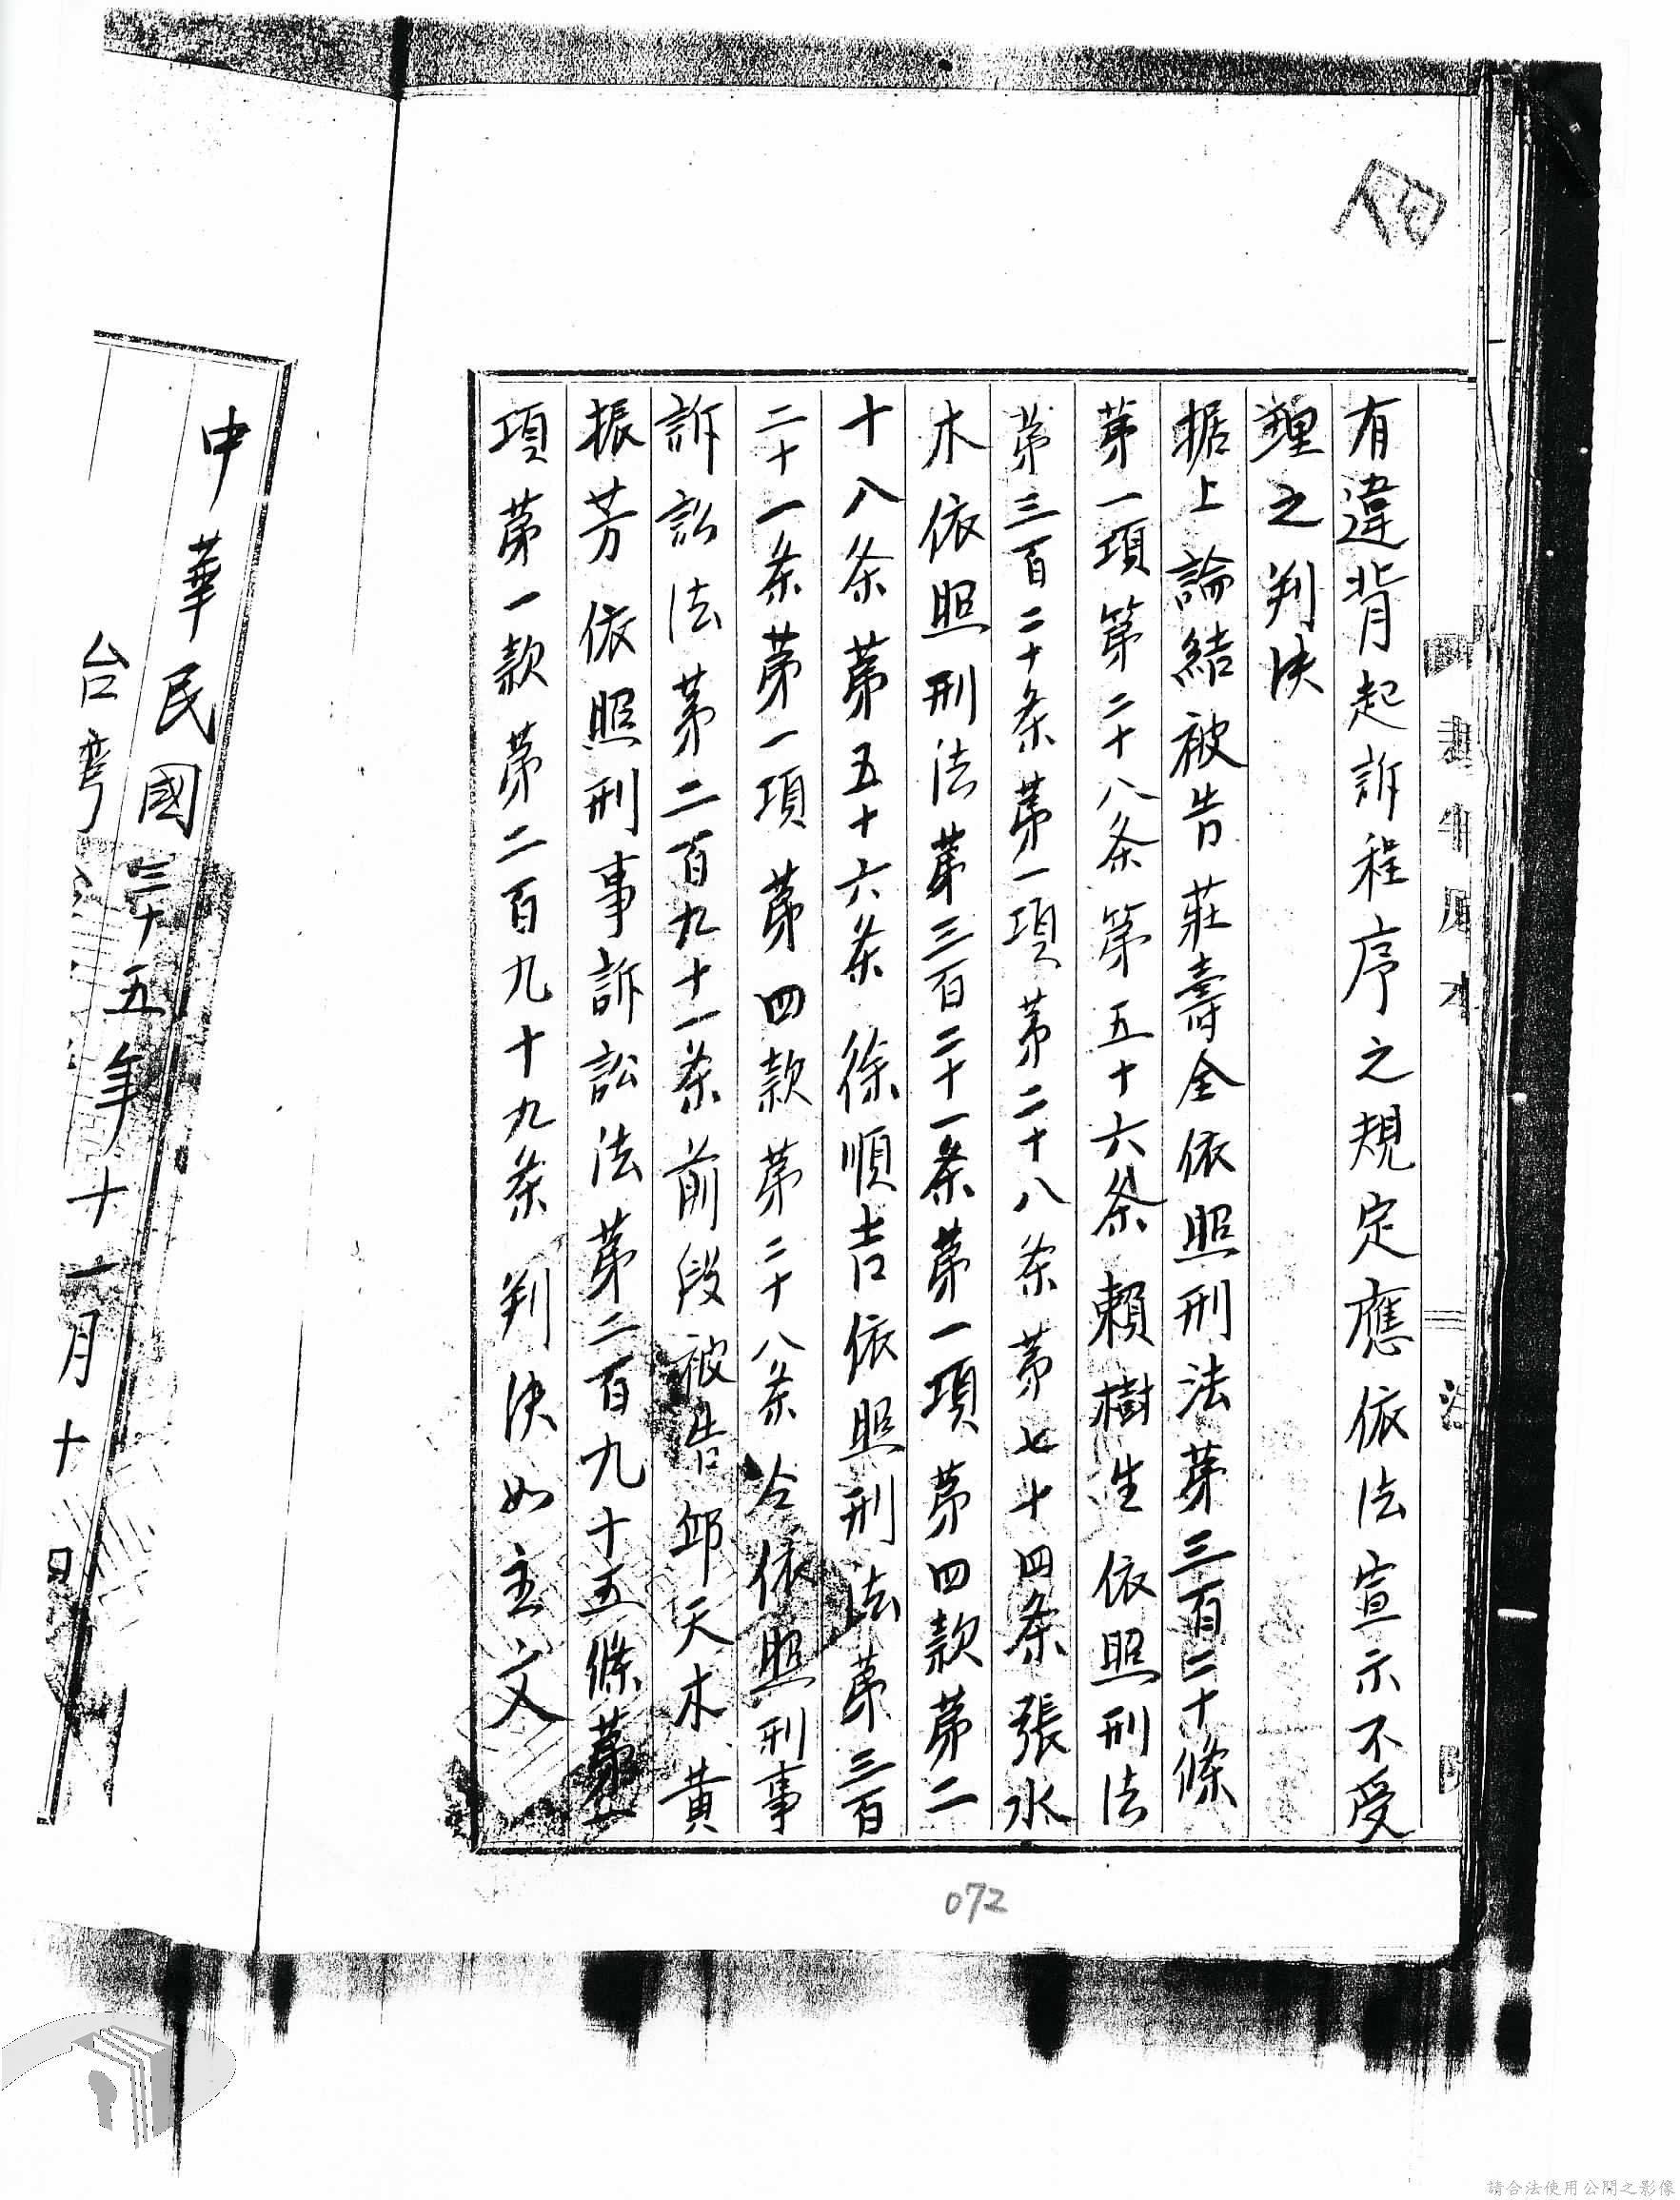 有違背起訴程序之規定應依法宣示不受
理之判決
据上論結被告莊壽全依照刑法苐三百二十條
苐一項第二十八条第五十六条賴樹生依照刑法
苐三百二十条苐一項苐二十八条苐七十四条張水
木依照刑法苐三百二十一条苐一項苐四款苐二
十八条苐五十六条徐順吉依照刑法苐三百
二十一条苐一項苐四款苐二十八条合依照刑事
訴訟法苐二百九十一条前段被告邱天木黃
振芳依照刑事訴訟法苐二百九十五條苐一
項苐一款苐二百九十九条判決如主文
中華民國三十五年十一月十 日
台灣
072
請合法使用公開之影像